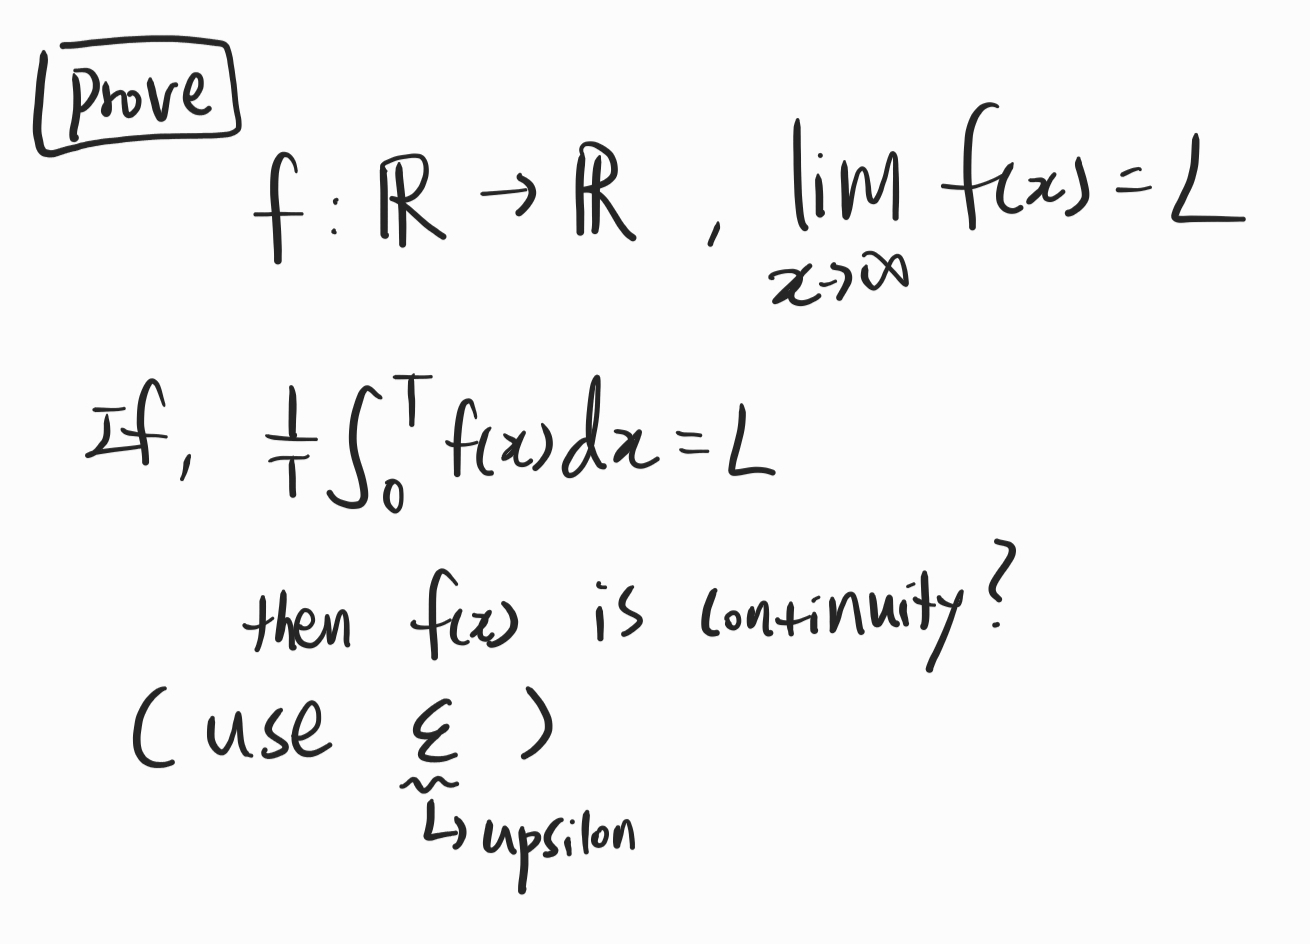 Prove
f : ℝ → ℝ , lim f(x) = L
x→∞
If, 1/T ∫₀ᵀ f(x)dx = L
then f(x) is continuity?
(use ε)
↳ upsilon